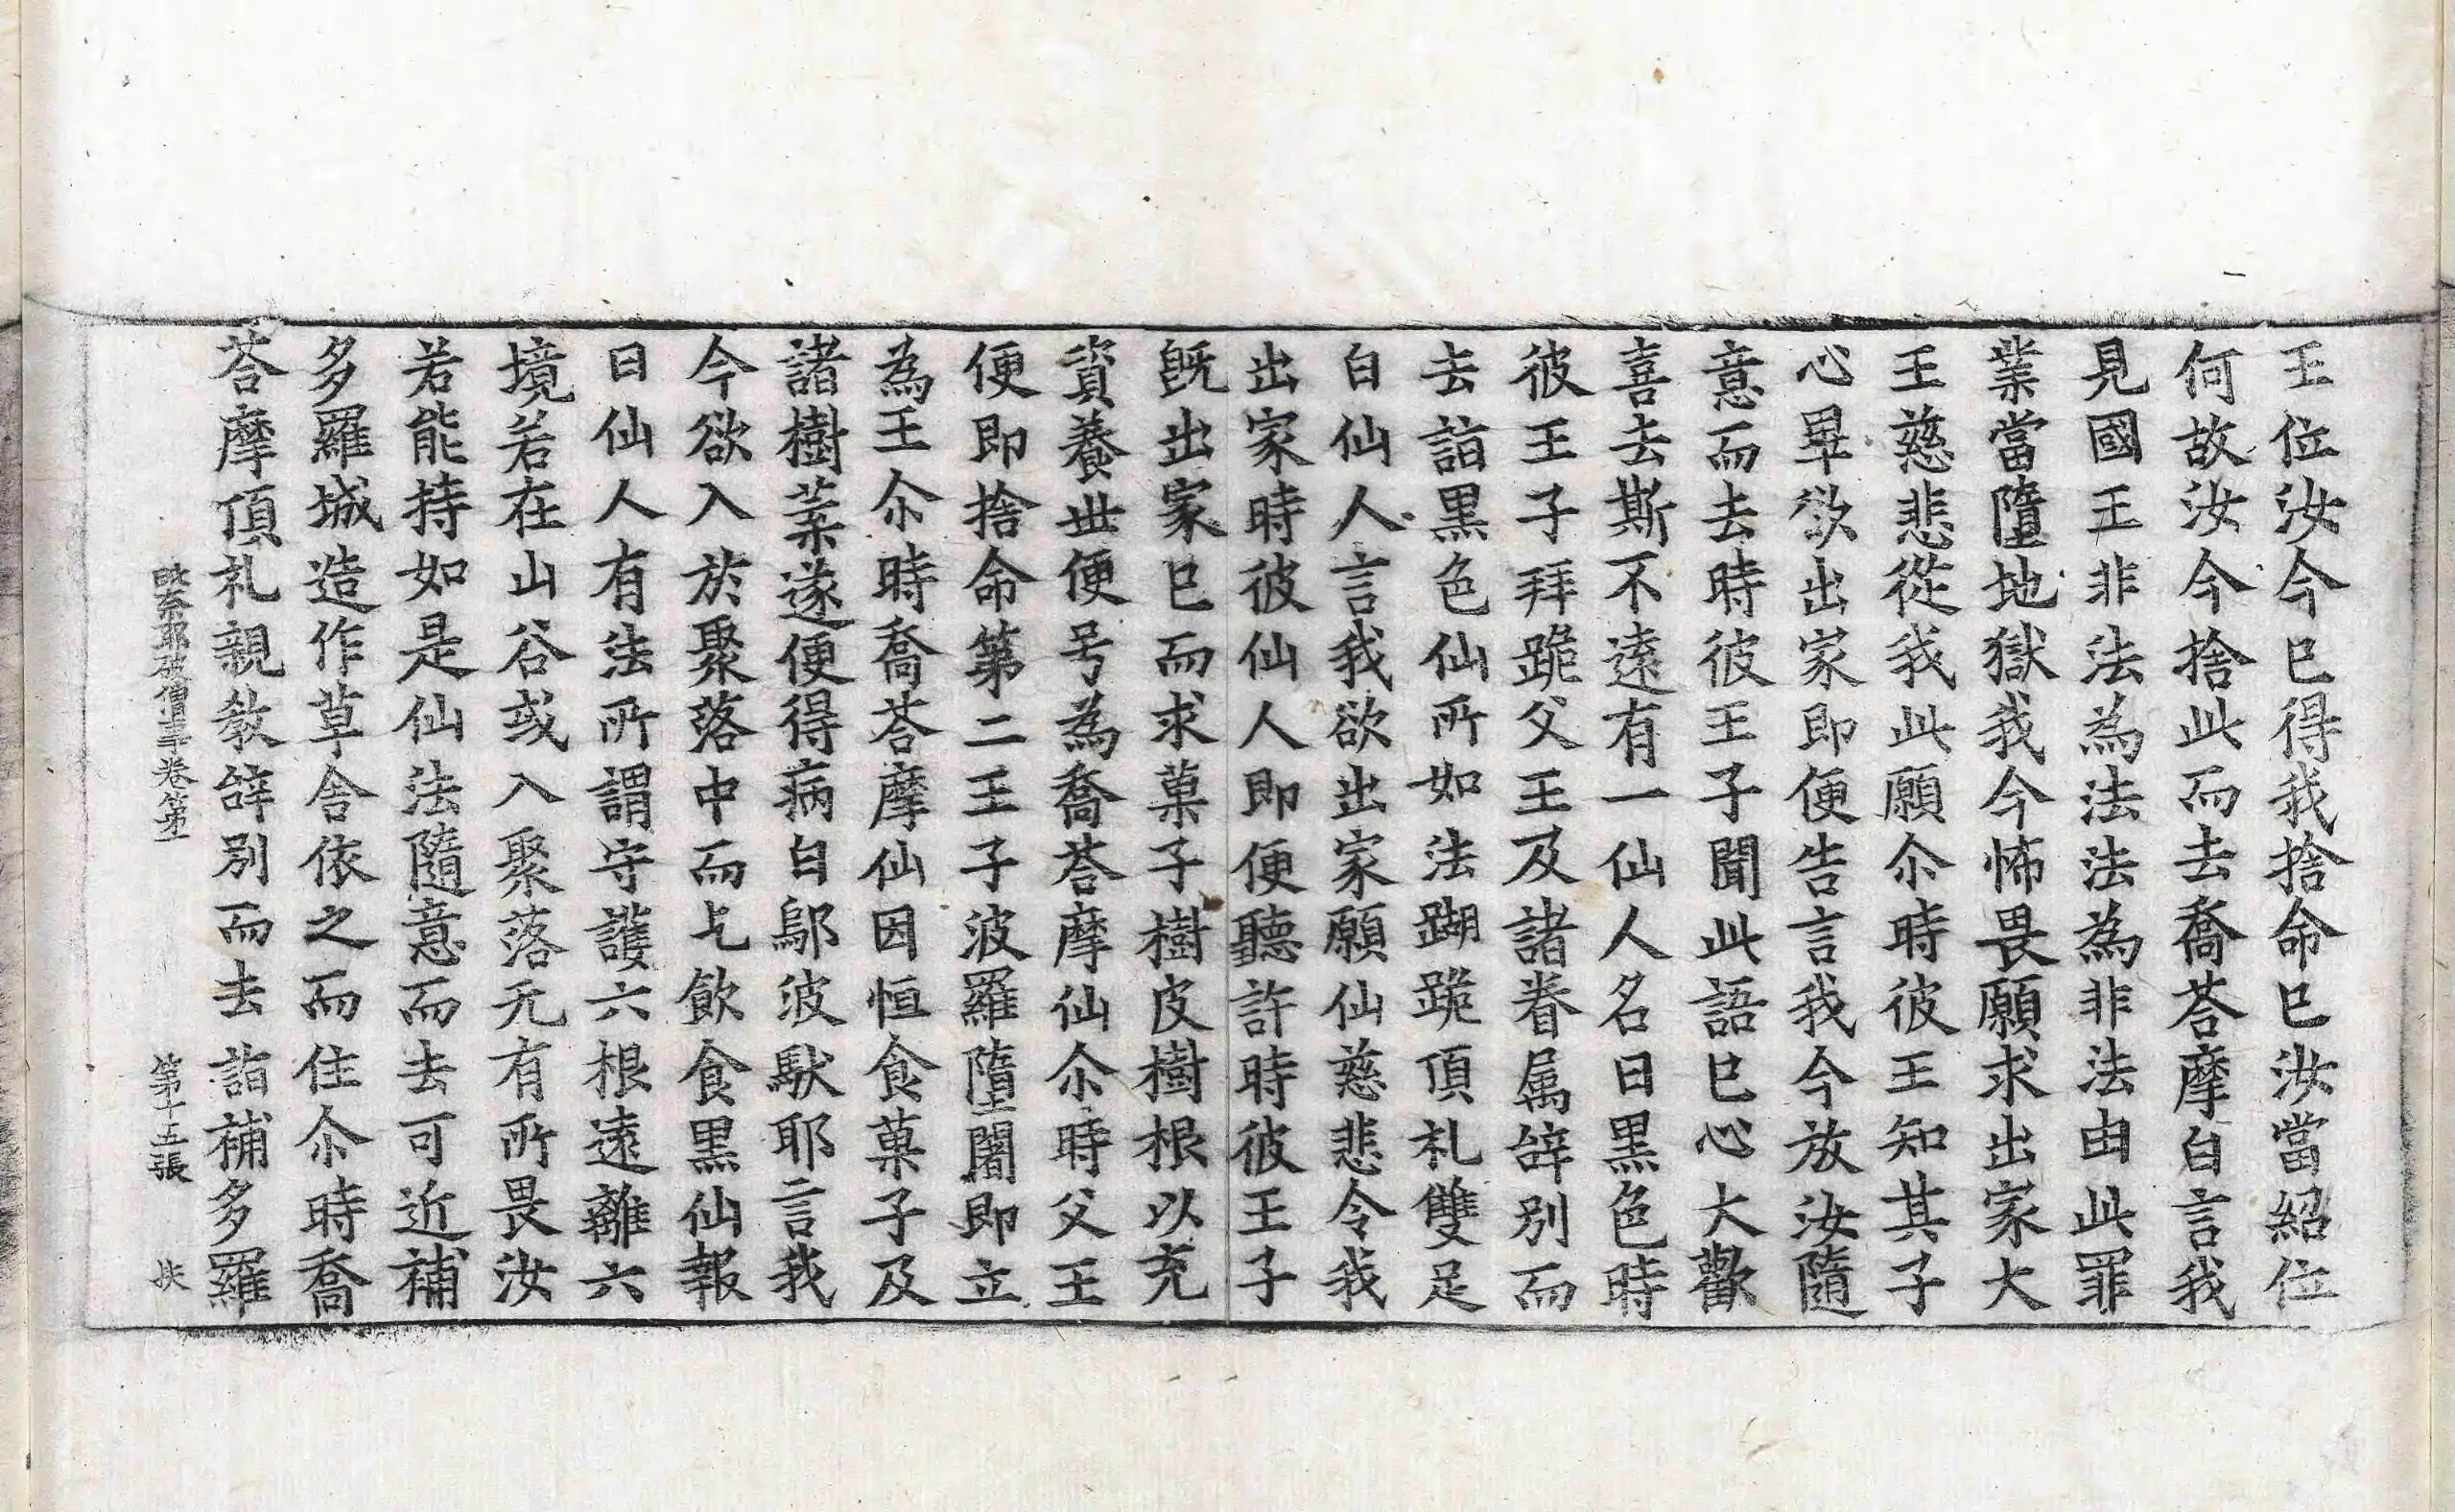 王位汝今已得我捨命已汝當紹位
何故汝今捨此而去喬荅摩白言我
見國王非法為法法為非法由此罪
業當墮地獄我今怖畏願求出家大
王慈悲從我此願尒時彼王知其子
心畢欲出家即便告言我今放汝隨
意而去時彼王子聞此語已心大歡
喜去斯不遠有一仙人名曰黑色時
彼王子拜跪父王及諸眷属辝別而
去詣黑色仙所如法蹦跪頂礼雙足
白仙人言我欲出家願仙慈悲令我
出家時彼仙人即便聽許時彼王子
旣出家已而求菓子樹皮樹根以充
資養世便号為喬荅摩仙尒時父王
便即捨命第二王子波羅墮闍即立
為王尒時喬荅摩仙因恒食菓子及
諸樹葉遂便得病白鄔波馱耶言我
今欲入於聚落中而乞飲食黑仙報
曰仙人有法所謂守護六根遠離六
境若在山谷或入聚落无有所畏汝
若能持如是仙法隨意而去可近補
多羅城造作草舍依之而住尒時喬
荅摩頂礼親教辝別而去詣補多羅
毗奈耶破僧事卷第一 第十五張